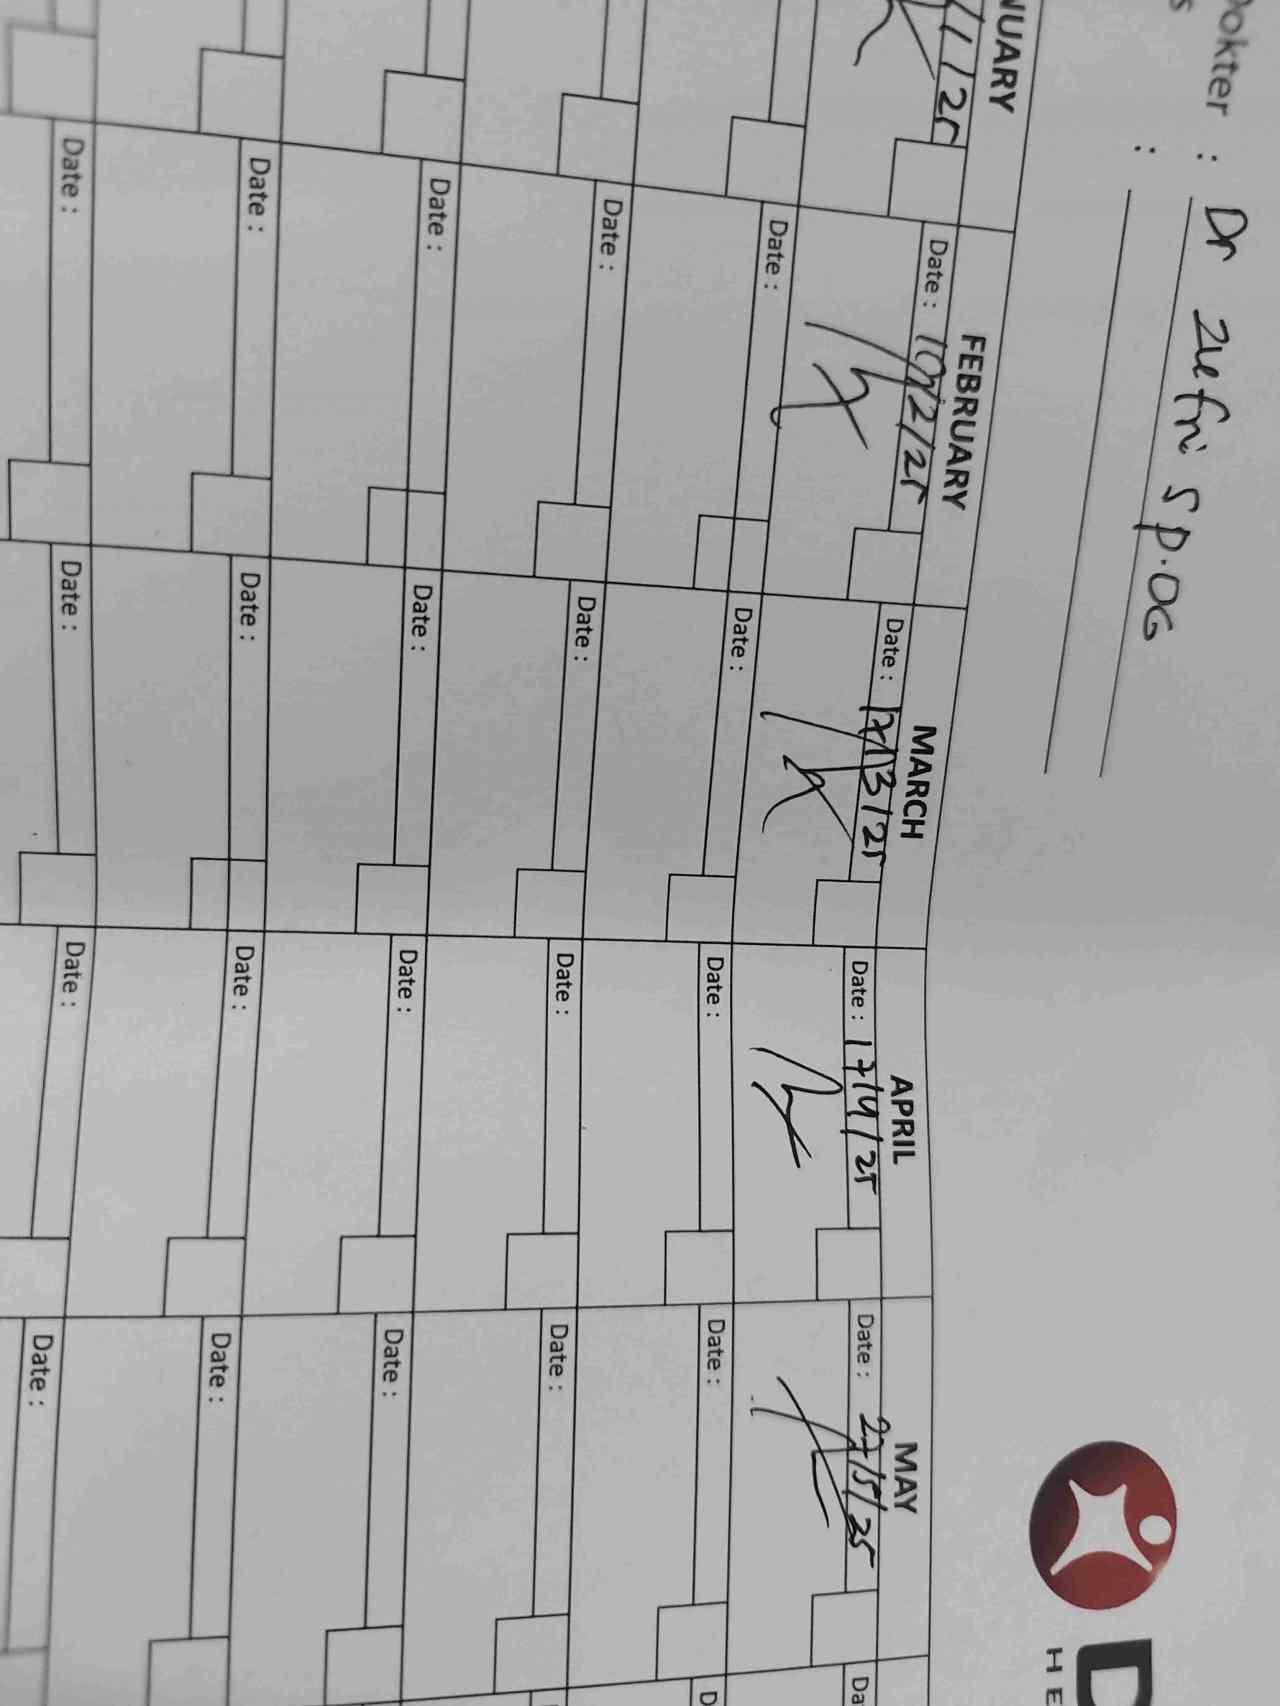 Dokter : Dr Zuefri Sp.OG
s :
D
HE
NUARY FEBRUARY MARCH APRIL MAY
/1/25 Date : 10/2/25 Date : 17/3/25 Date : 17/4/25 Date : 22/5/25 Da
Date : Date : Date : Date : D
Date : Date : Date : Date :
Date : Date : Date : Date :
Date : Date : Date : Date :
Date : Date : Date : Date :